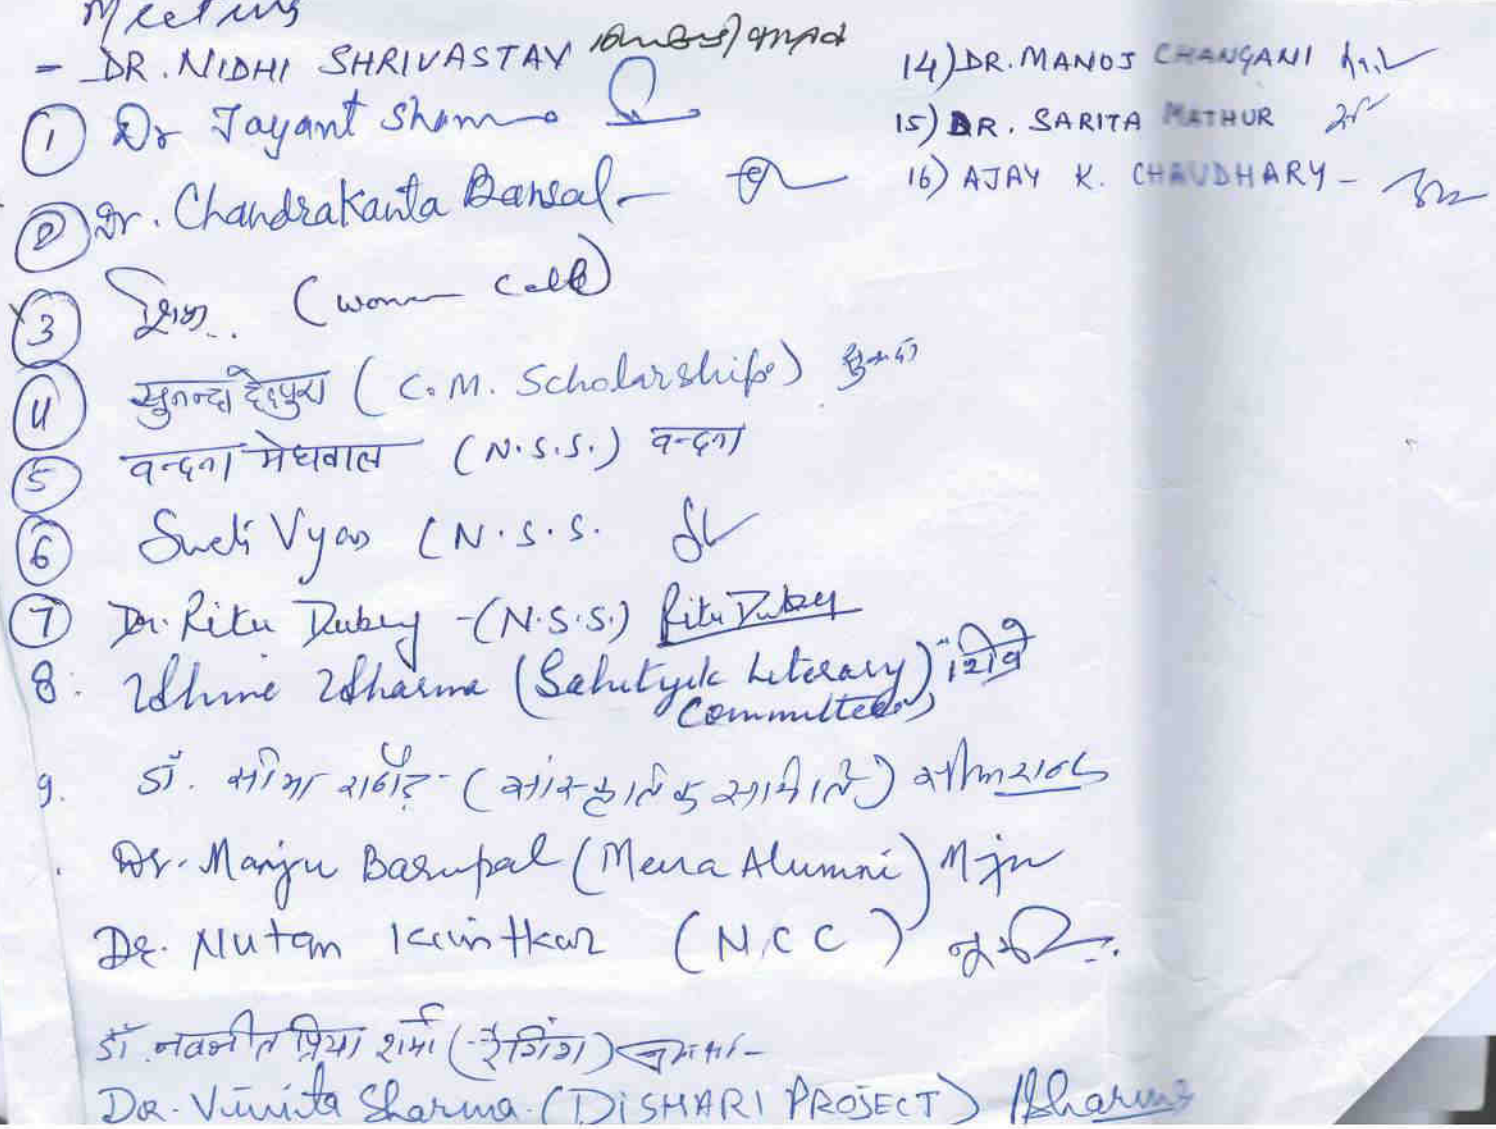 Meeting
- DR. NIDHI SHRIVASTAV
1 Dr Jayant Sharma
2 Dr. Chandrakanta Bansal -
3 (women cell)
4 सुनन्दा देवपुरा (C.M. Scholarship)
5 वन्दना मेघवाल (N.S.S.) वन्दना
6 Sweti Vyas (N.S.S.
7 Dr. Ritu Dubey - (N.S.S.) Ritu Dubey
8. Sharma (Sahityik Literary)
Committee)
9. डॉ. सीमा राठौड़ - (सांस्कृतिक समिति)
Dr. Manju Barupal (Meera Alumni) Mju
Dr. Nutan (N.C.C)
डॉ. नवनीत प्रिया शर्मा (रैगिंग)
Dr. Vinita Sharma. (DISHARI PROJECT) Sharma
14) DR. MANOJ CHANGANI
15) DR. SARITA MATHUR
16) AJAY K. CHAUDHARY -